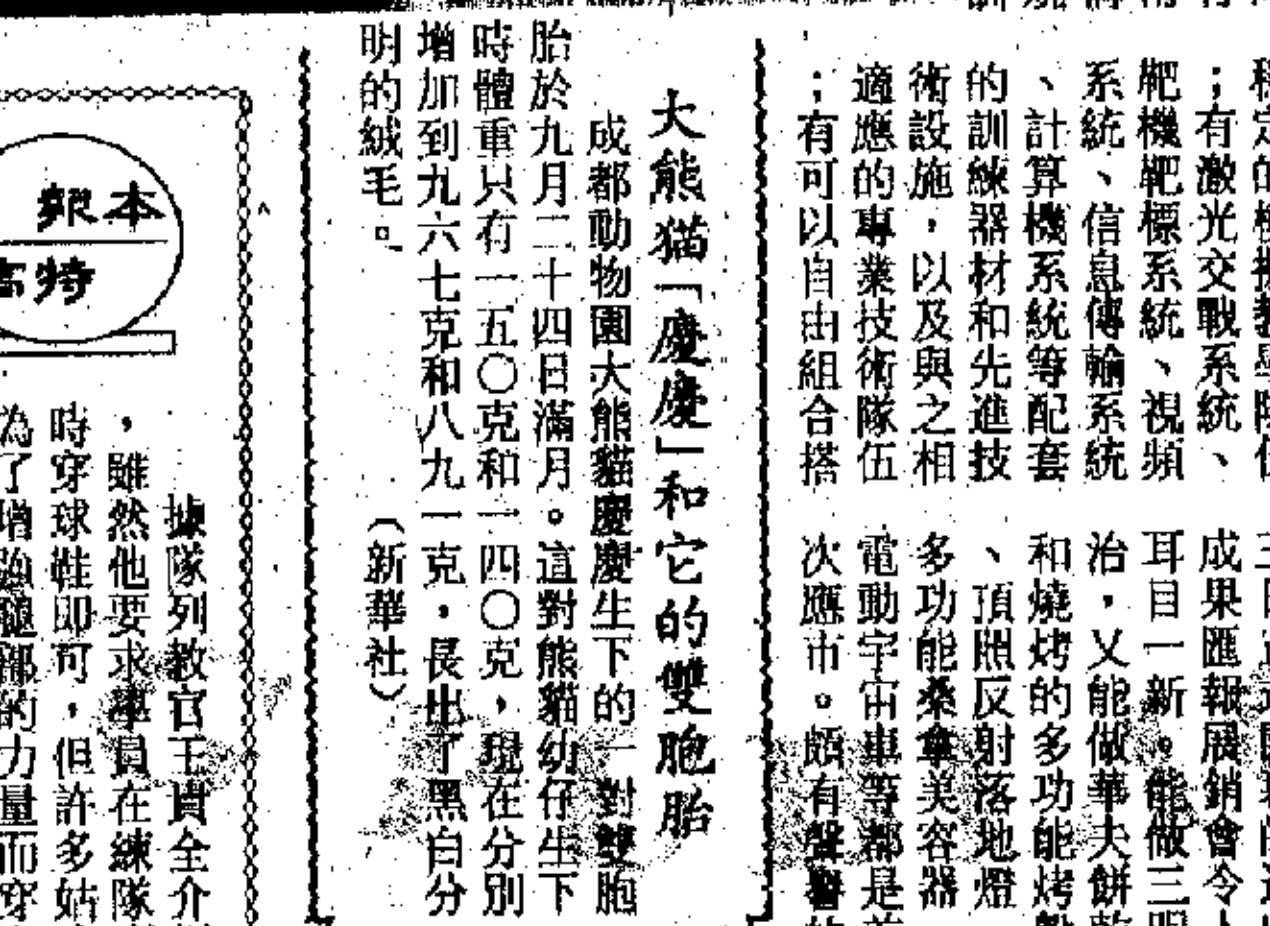 ；有激光交戰系統、
靶機靶標系統、視頻
系統、信息傳輸系統
、計算機系統等配套
的訓練器材和先進技
術設施，以及與之相
適應的專業技術隊伍
；有可以自由組合搭
成果匯報展銷會令
耳目一新。能做三明
治，又能做華夫餅乾
和燒烤的多功能烤
、頂照反射落地燈
多功能桑拿美容器
電動宇宙車等都是首
次應市。頗有聲譽的
大熊猫「慶慶」和它的雙胞胎
成都動物園大熊貓慶慶生下的一對雙胞
胎於九月二十四日滿月。這對熊貓幼仔生下
時體重只有一五〇克和一四〇克，現在分別
增加到九六七克和八九一克，長出了黑白分
明的絨毛。
（新華社）
本報
特
據隊列教官王貴全介
，雖然他要求學員在練隊
時穿球鞋即可，但許多姑
為了增強腿部的力量而穿